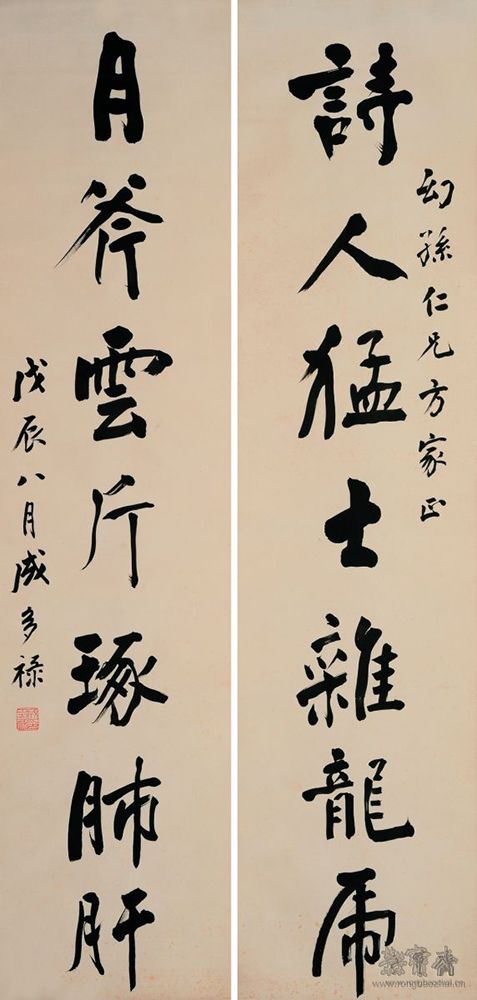 幼孫仁兄方家正
詩人猛士雜龍虎
月斧雲斤琢肺肝
戊辰八月成多祿
榮寶齋
www.rongbaozhai.cn